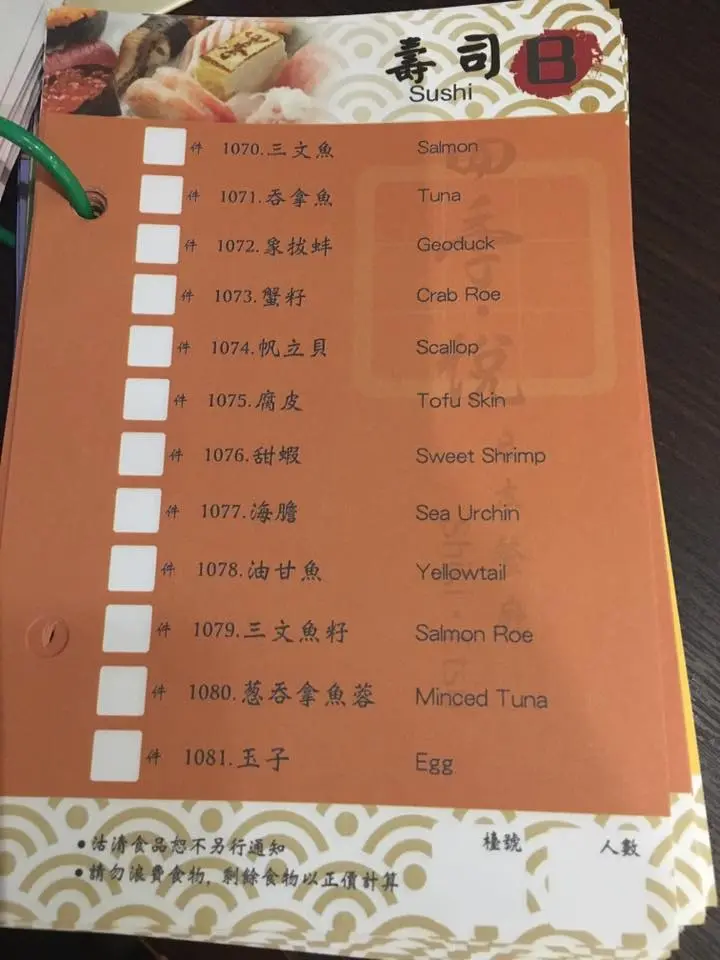 壽司 B
Sushi
件 1070.三文魚 Salmon
件 1071.吞拿魚 Tuna
件 1072.象拔蚌 Geoduck
件 1073.蟹籽 Crab Roe
件 1074.帆立貝 Scallop
件 1075.腐皮 Tofu Skin
件 1076.甜蝦 Sweet Shrimp
件 1077.海膽 Sea Urchin
件 1078.油甘魚 Yellowtail
件 1079.三文魚籽 Salmon Roe
件 1080.蔥吞拿魚蓉 Minced Tuna
件 1081.玉子 Egg
•沽清食品恕不另行通知
•請勿浪費食物, 剩餘食物以正價計算
檯號 人數